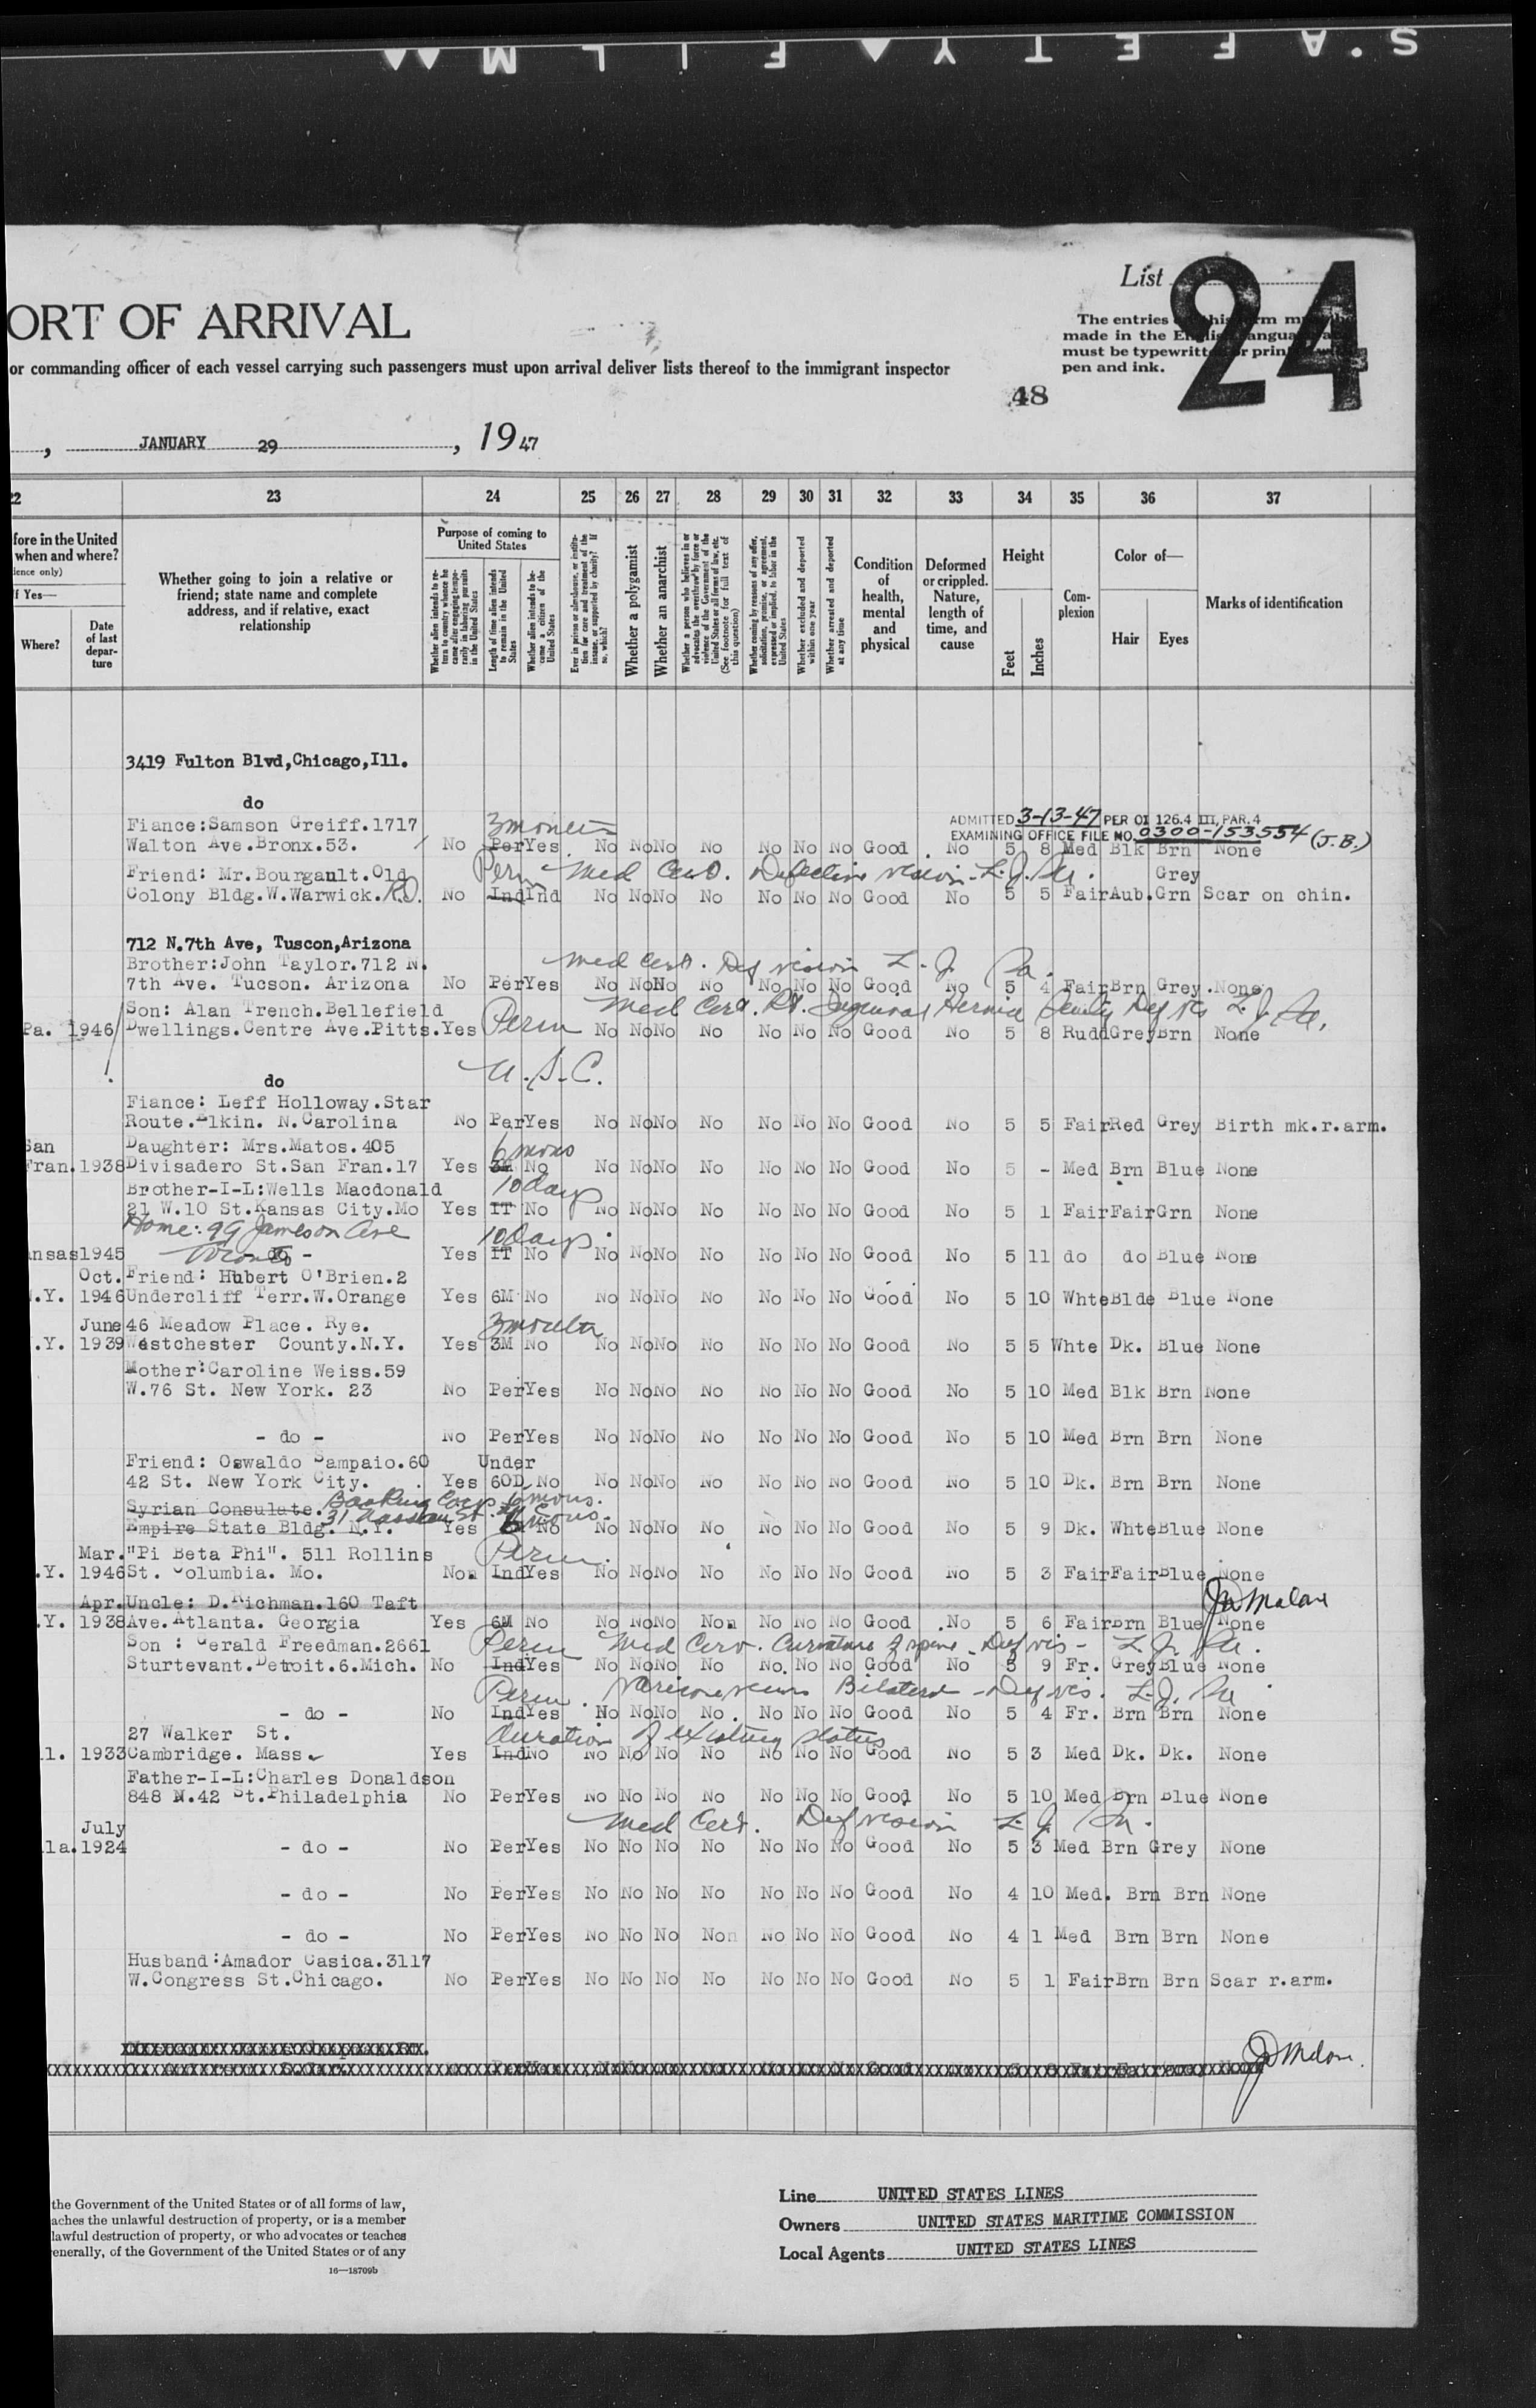 S·AFETY ▲ FILM ▲▲
List 24
ORT OF ARRIVAL
The entries this form must be
made in the English language and
must be typewritten or printed with
pen and ink.
or commanding officer of each vessel carrying such passengers must upon arrival deliver lists thereof to the immigrant inspector
48
, JANUARY 29, 19 47
22 23 24 25 26 27 28 29 30 31 32 33 34 35 36 37
fore in the United
when and where?
lence only)
f Yes—
Where?
Date
of last
depar-
ture
Whether going to join a relative or
friend; state name and complete
address, and if relative, exact
relationship
Purpose of coming to
United States
Whether alien intends to re-
turn to country whence he
came after engaging tempo-
rarily in laboring pursuits
in the United States
Length of time alien intends
to remain in the United
States
Whether alien intends to be-
come a citizen of the
United States
Ever in prison or almshouse, or institu-
tion for care and treatment of the
insane, or supported by charity? If
so, which?
Whether a polygamist
Whether an anarchist
Whether a person who believes in or
advocates the overthrow by force or
violence of the Government of the
United States or all forms of law, etc.
(See footnote for full text of
this question)
Whether coming by reasons of any offer,
solicitation, promise, or agreement,
expressed or implied, to labor in the
United States
Whether excluded and deported
within one year
Whether arrested and deported
at any time
Condition
of
health,
mental
and
physical
Deformed
or crippled.
Nature,
length of
time, and
cause
Height
Feet
Inches
Com-
plexion
Color of—
Hair Eyes
Marks of identification
3419 Fulton Blvd,Chicago,Ill.
do
ADMITTED 3-13-47 PER OI 126.4 III, PAR. 4
Fiance:Samson Greiff.1717 3 months
EXAMINING OFFICE FILE NO. 0300-153554 (J.B.)
Walton Ave.Bronx.53. No Per Yes No No No No No No No Good No 5 8 Med Blk Brn None
Friend: Mr.Bourgault.Old Perm Med Cert. Defective vision - L.J. Pa. Grey
Colony Bldg.W.Warwick.R.I. No Ind Ind No No No No No No No Good No 5 5 Fair Aub. Grn Scar on chin.
712 N.7th Ave, Tuscon,Arizona
Brother:John Taylor.712 N. Med Cert. Def vision L.J. Pa.
7th Ave. Tucson. Arizona No Per Yes No No No No No No No Good No 5 4 Fair Brn Grey None
Son: Alan Trench.Bellefield Med Cert. Rt. Inguinal Hernia Senility Def vis L.J. Pa.
Pa. 1946 Dwellings.Centre Ave.Pitts. Yes Perm No No No No No No No Good No 5 8 Rudd Grey Brn None
U.S.C.
do
Fiance: Leff Holloway.Star
Route.Elkin. N.Carolina No Per Yes No No No No No No No Good No 5 5 Fair Red Grey Birth mk.r.arm.
San Daughter: Mrs.Matos.405 6 mons
Fran. 1938 Divisadero St.San Fran.17 Yes 3M No No No No No No No No Good No 5 - Med Brn Blue None
Brother-I-L:Wells Macdonald 10 days
21 W.10 St.Kansas City.Mo Yes IT No No No No No No No No Good No 5 1 Fair Fair Grn None
Home: 99 Jameson Ave 10 days
ansas 1945 Toronto - do - Yes IT No No No No No No No No Good No 5 11 do do Blue None
Oct. Friend: Hubert O'Brien.2
.Y. 1946 Undercliff Terr.W.Orange Yes 6M No No No No No No No No Good No 5 10 Whte Blde Blue None
June 46 Meadow Place. Rye. 3 months
.Y. 1939 Westchester County.N.Y. Yes 3M No No No No No No No No Good No 5 5 Whte Dk. Blue None
Mother:Caroline Weiss.59
W.76 St. New York. 23 No Per Yes No No No No No No No Good No 5 10 Med Blk Brn None
- do - No Per Yes No No No No No No No Good No 5 10 Med Brn Brn None
Friend: Oswaldo Sampaio.60 Under
42 St. New York City. Yes 60D. No No No No No No No No Good No 5 10 Dk. Brn Brn None
Syrian Consulate. Banking Corp 6 mons.
Empire State Bldg. N.Y. 31 Nassau St. Yes 6 mons. No No No No No No No No Good No 5 9 Dk. Whte Blue None
Mar. "Pi Beta Phi". 511 Rollins Perm.
.Y. 1946 St. Columbia. Mo. Non Ind Yes No No No No No No No Good No 5 3 Fair Fair Blue None
Apr. Uncle: D.Richman.160 Taft
.Y. 1938 Ave.Atlanta. Georgia Yes 6M No No No No Non No No No Good No 5 6 Fair Brn Blue None
Son : Gerald Freedman.2661 Perm Med Cert. Curvature of spine - Def vis - L.J. Pa.
Sturtevant.Detroit.6.Mich. No Ind Yes No No No No No. No No Good No 5 9 Fr. Grey Blue None
Perm. Varicose veins Bilateral - Def vis. L.J. Pa
- do - No Ind Yes No No No No No No No Good No 5 4 Fr. Brn Brn None
27 Walker St. Duration of existing status
ll. 1933 Cambridge. Mass. Yes Ind No No No No No No No No Good No 5 3 Med Dk. Dk. None
Father-I-L:Charles Donaldson
848 N.42 St.Philadelphia No Per Yes No No No No No No No Good No 5 10 Med Brn Blue None
July Med Cert. Def vision L.J. Pa.
la. 1924 - do - No Per Yes No No No No No No No Good No 5 3 Med Brn Grey None
- do - No Per Yes No No No No No No No Good No 4 10 Med. Brn Brn None
- do - No Per Yes No No No Non No No No Good No 4 1 Med Brn Brn None
Husband:Amador Casica.3117
W.Congress St.Chicago. No Per Yes No No No No No No No Good No 5 1 Fair Brn Brn Scar r.arm.
the Government of the United States or of all forms of law,
aches the unlawful destruction of property, or is a member
lawful destruction of property, or who advocates or teaches
enerally, of the Government of the United States or of any
16—18709b
Line UNITED STATES LINES
Owners UNITED STATES MARITIME COMMISSION
Local Agents UNITED STATES LINES